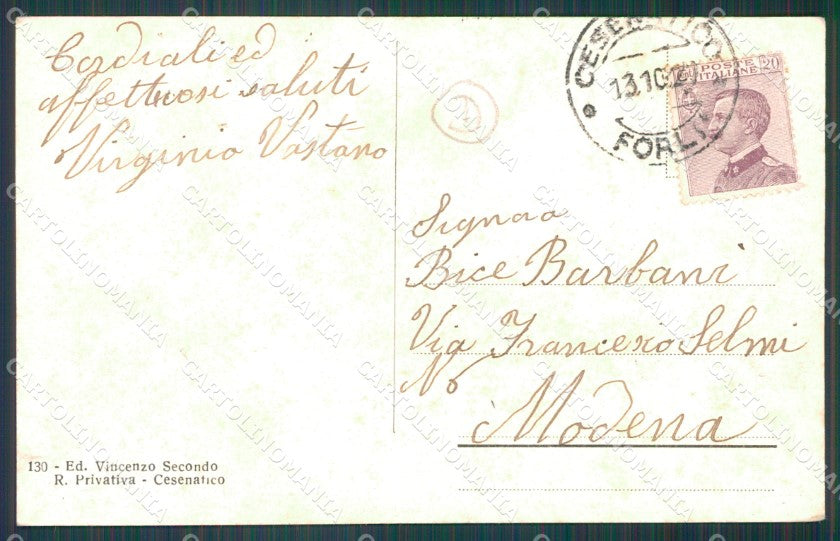 Cordiali ed
affettuosi saluti
Virginio Vastano
CESENATICO
13.10.2
FORLI
POSTE
ITALIANE
20
Signora
Bice Barbani
Via Francesco Selmi
No
Modena
130 - Ed. Vincenzo Secondo
R. Privativa - Cesenatico
CARTOLINOMANIA